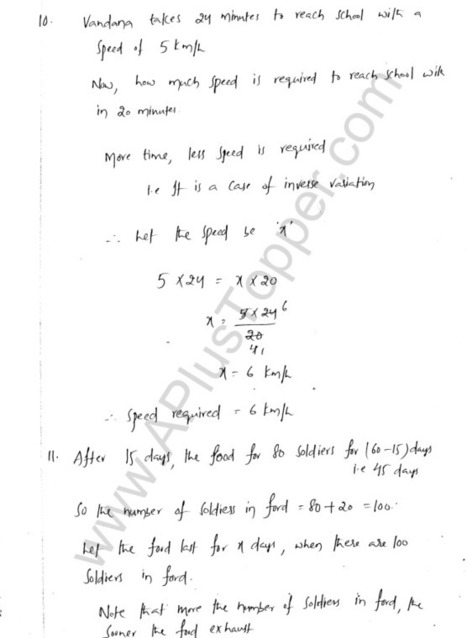 10. Vandana takes 24 minutes to reach school with a
speed of 5 km/h
Now, how much speed is required to reach school with
in 20 minutes
More time, less speed is required
i.e It is a case of inverse variation
∴ Let the speed be 'x'
5 × 24 = x × 20
x = 5 × 24 6
20
4 1
x = 6 km/h
∴ Speed required = 6 km/h
11. After 15 days, the food for 80 soldiers for (60-15) days
i.e 45 days
So the number of soldiers in ford = 80 + 20 = 100.
Let the food last for x days, when there are 100
soldiers in ford.
Note that more the number of soldiers in ford, the
sooner the food exhaust
www.APlusTopper.com